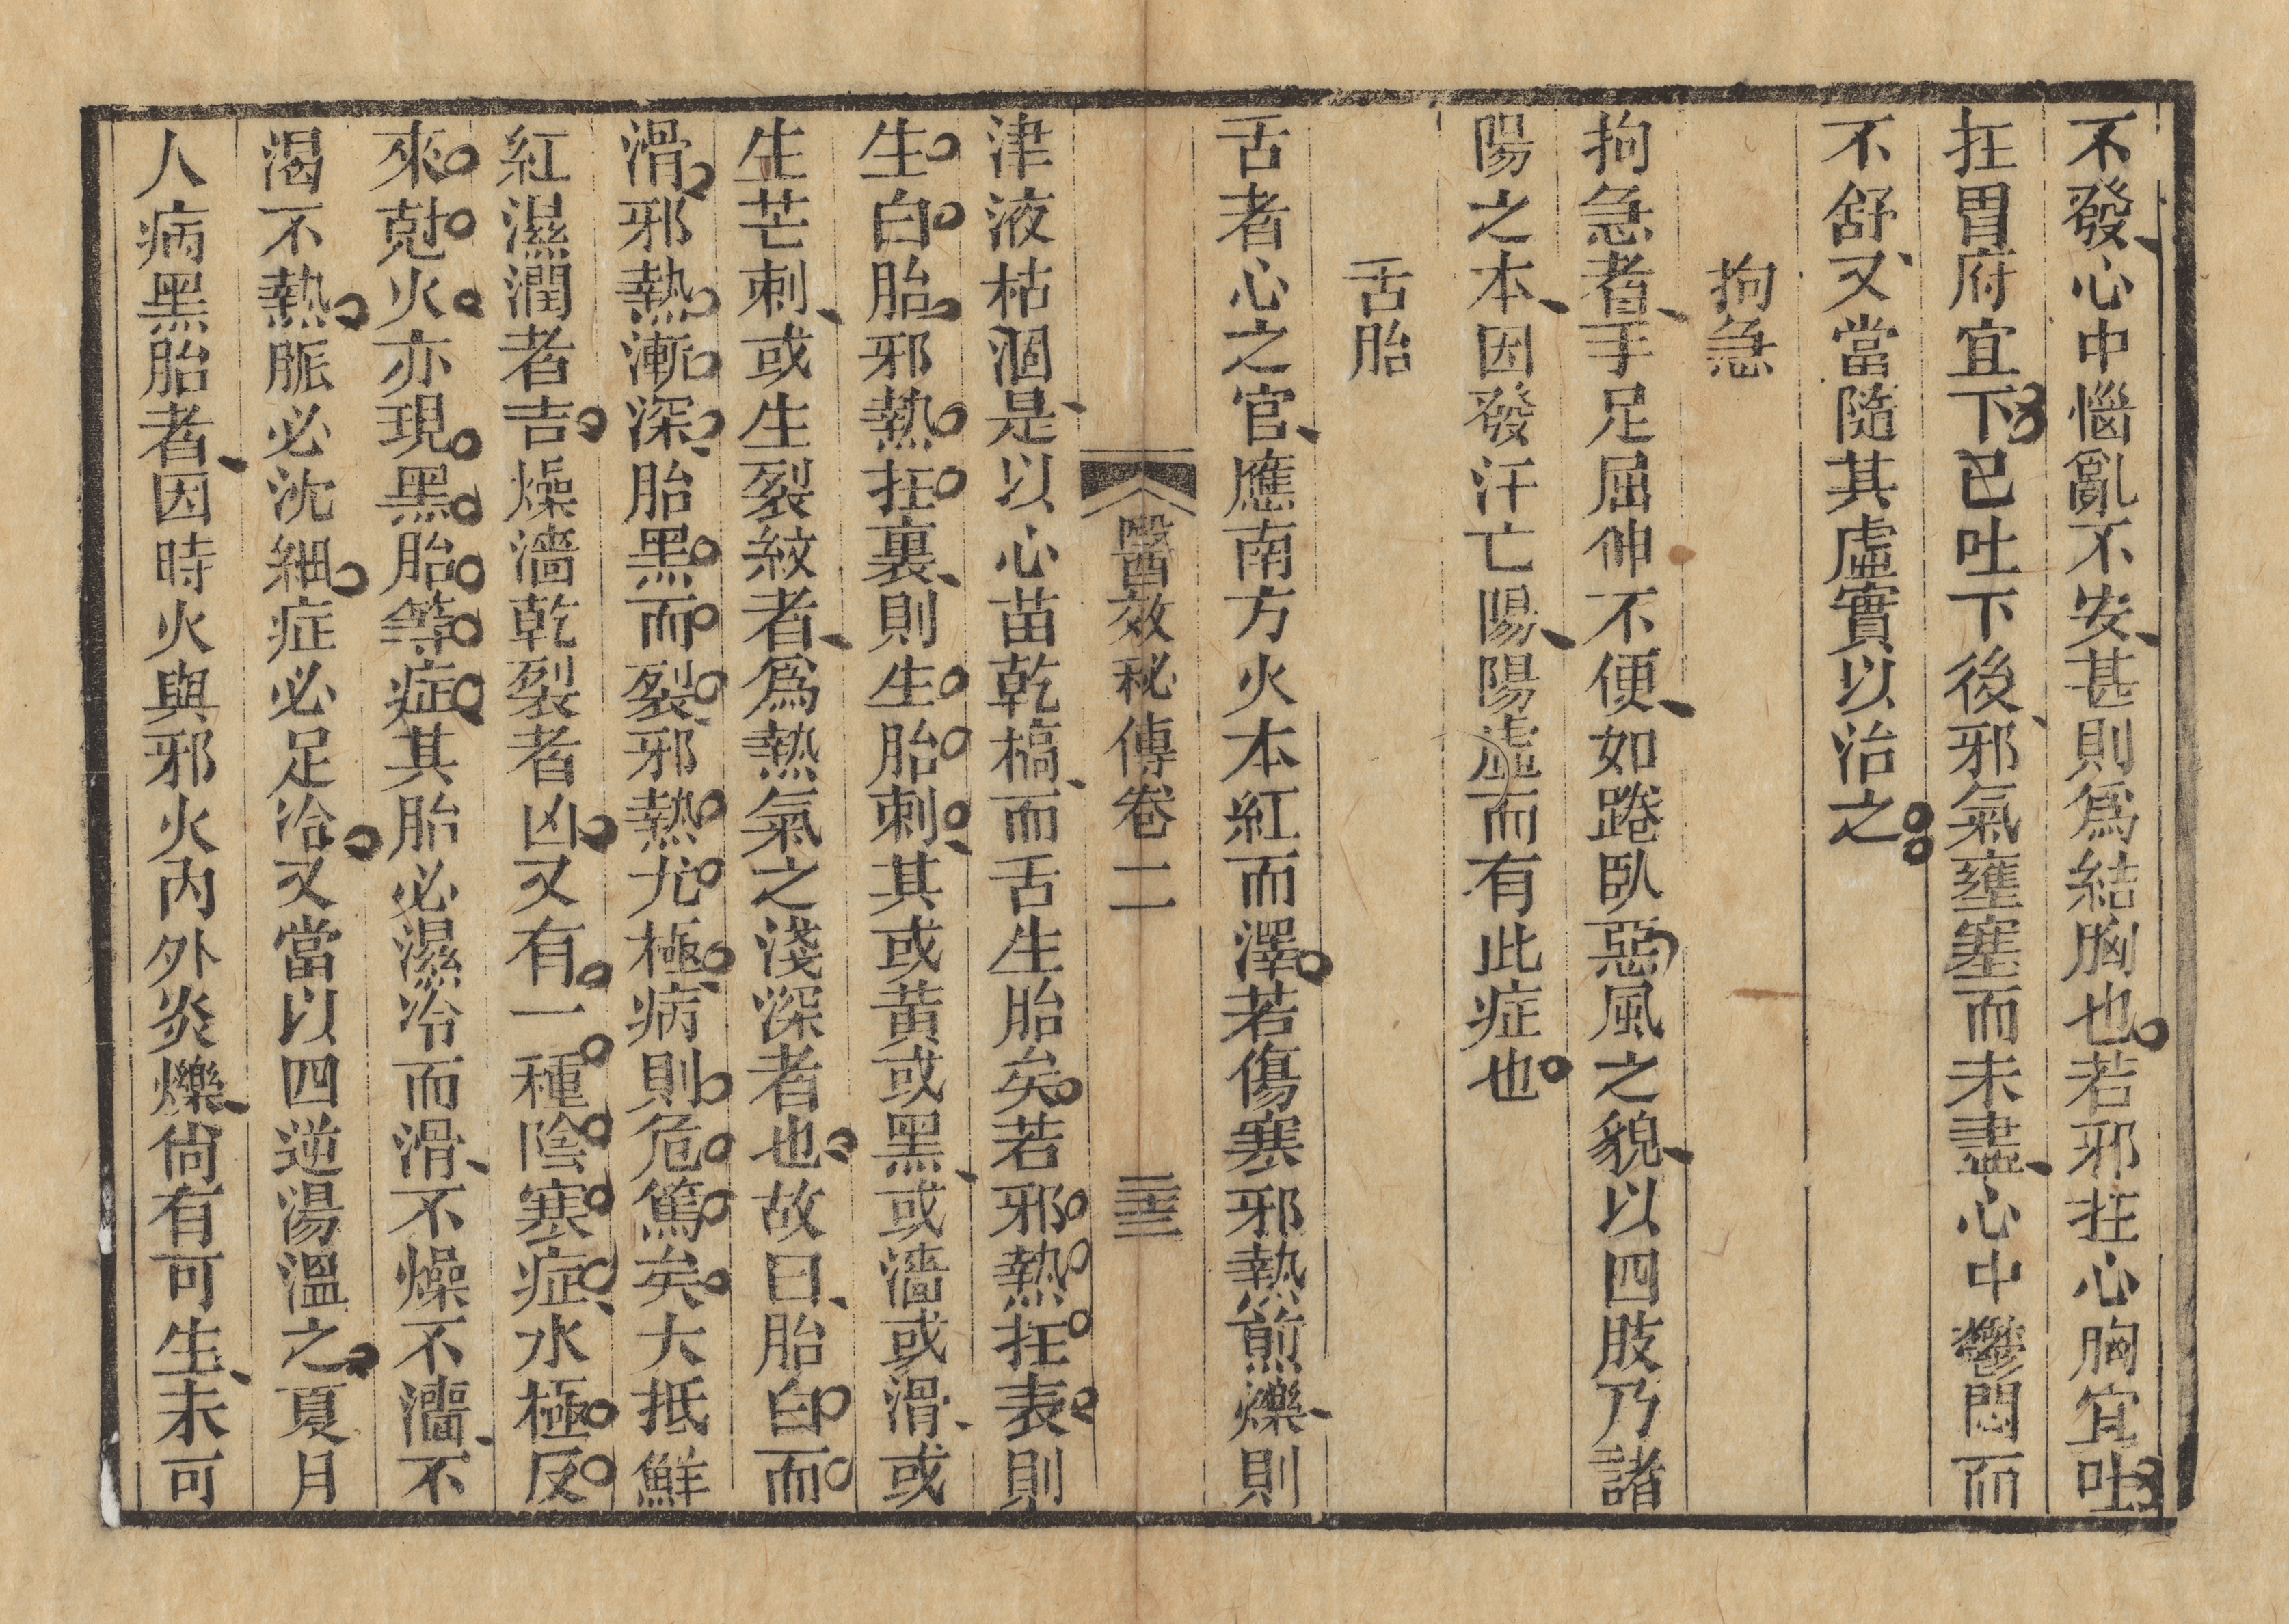 不發心中惱亂不安甚則爲結胸也若邪在心胸宜吐
在胃府宜下已吐下後邪氣壅塞而未盡心中鬱悶而
不舒又當隨其虛實以治之
拘急
拘急者手足屈伸不便如踡臥惡風之貌以四肢乃諸
陽之本因發汗亡陽陽虛而有此症也
舌胎
舌者心之官應南方火本紅而澤若傷寒邪熱煎爍則
醫效秘傳卷二 二十三
津液枯涸是以心苗乾槁而舌生胎矣若邪熱在表則
生白胎邪熱在裏則生胎刺其或黃或黑或濇或滑或
生芒刺或生裂紋者爲熱氣之淺深者也故曰胎白而
滑邪熱漸深胎黑而裂邪熱尤極病則危篤矣大抵鮮
紅濕潤者吉燥濇乾裂者凶又有一種陰寒症水極反
來尅火亦現黑胎等症其胎必濕冷而滑不燥不濇不
渴不熱脈必沈細症必足冷又當以四逆湯溫之夏月
人病黑胎者因時火與邪火內外炎爍尙有可生未可